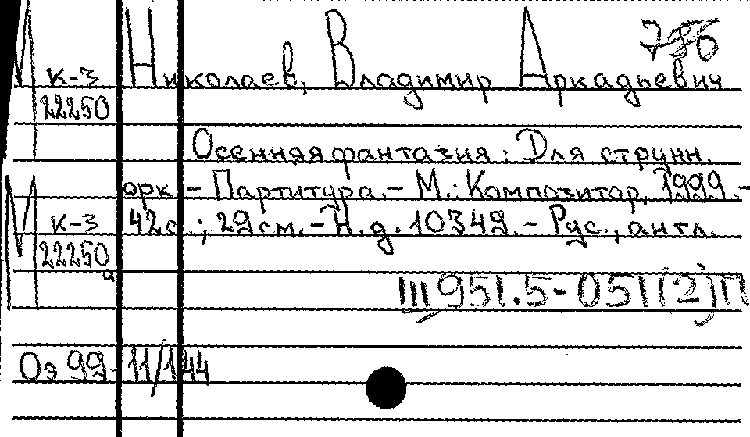 786
М к-3 Николаев, Владимир Аркадьевич
22250
Осенняя фантазия: Для струнн.
орк. - Партитура. - М.: Композитор, 1999. -
М к-3 42с.; 29см. - Н.д. 10349. - Рус., англ.
22250
а
Ш 951.5-051(2)П
Оэ 99-11/144